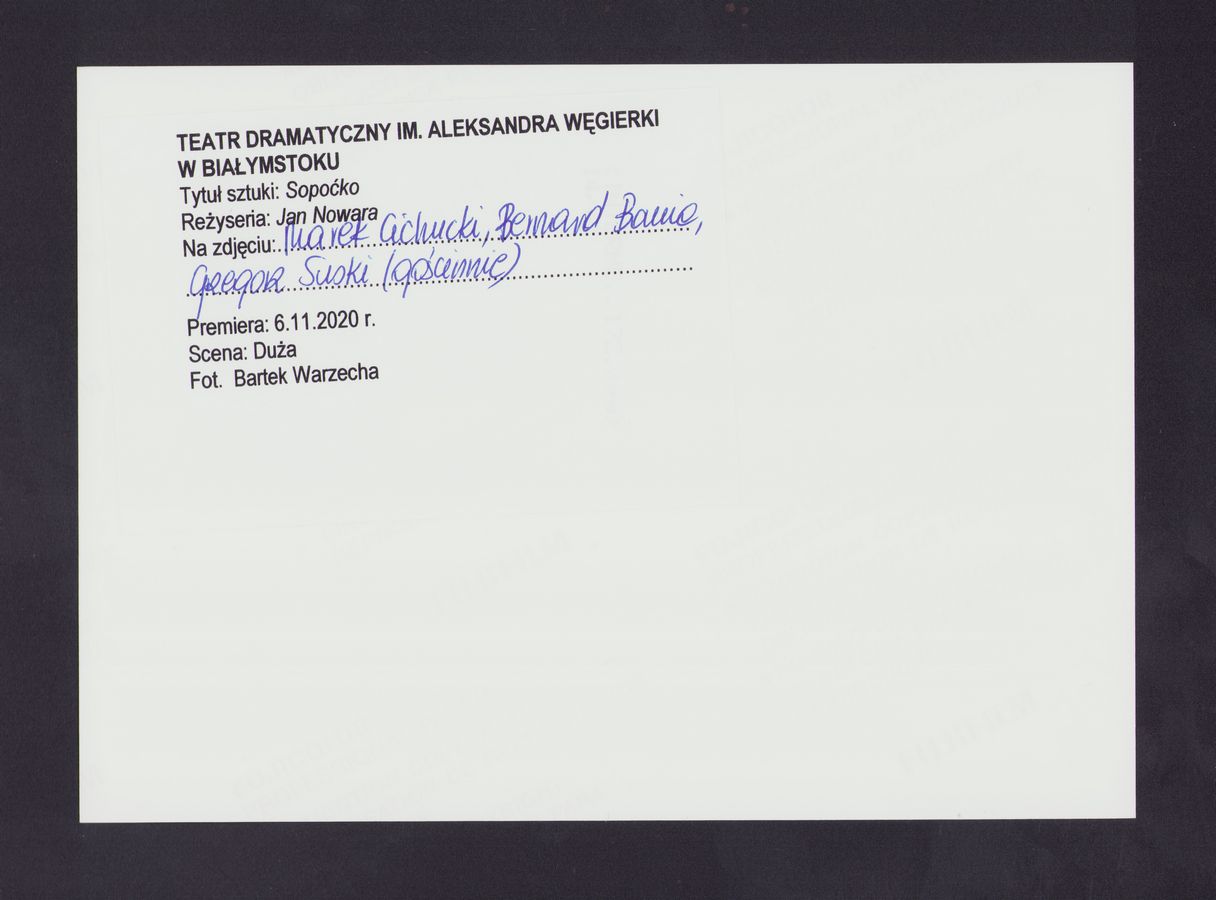 TEATR DRAMATYCZNY IM. ALEKSANDRA WĘGIERKI
W BIAŁYMSTOKU
Tytuł sztuki: Sopoćko
Reżyseria: Jan Nowara
Na zdjęciu: Marek Cichucki, Bernard Bania,
Grzegorz Suski (gościnnie)
Premiera: 6.11.2020 r.
Scena: Duża
Fot. Bartek Warzecha